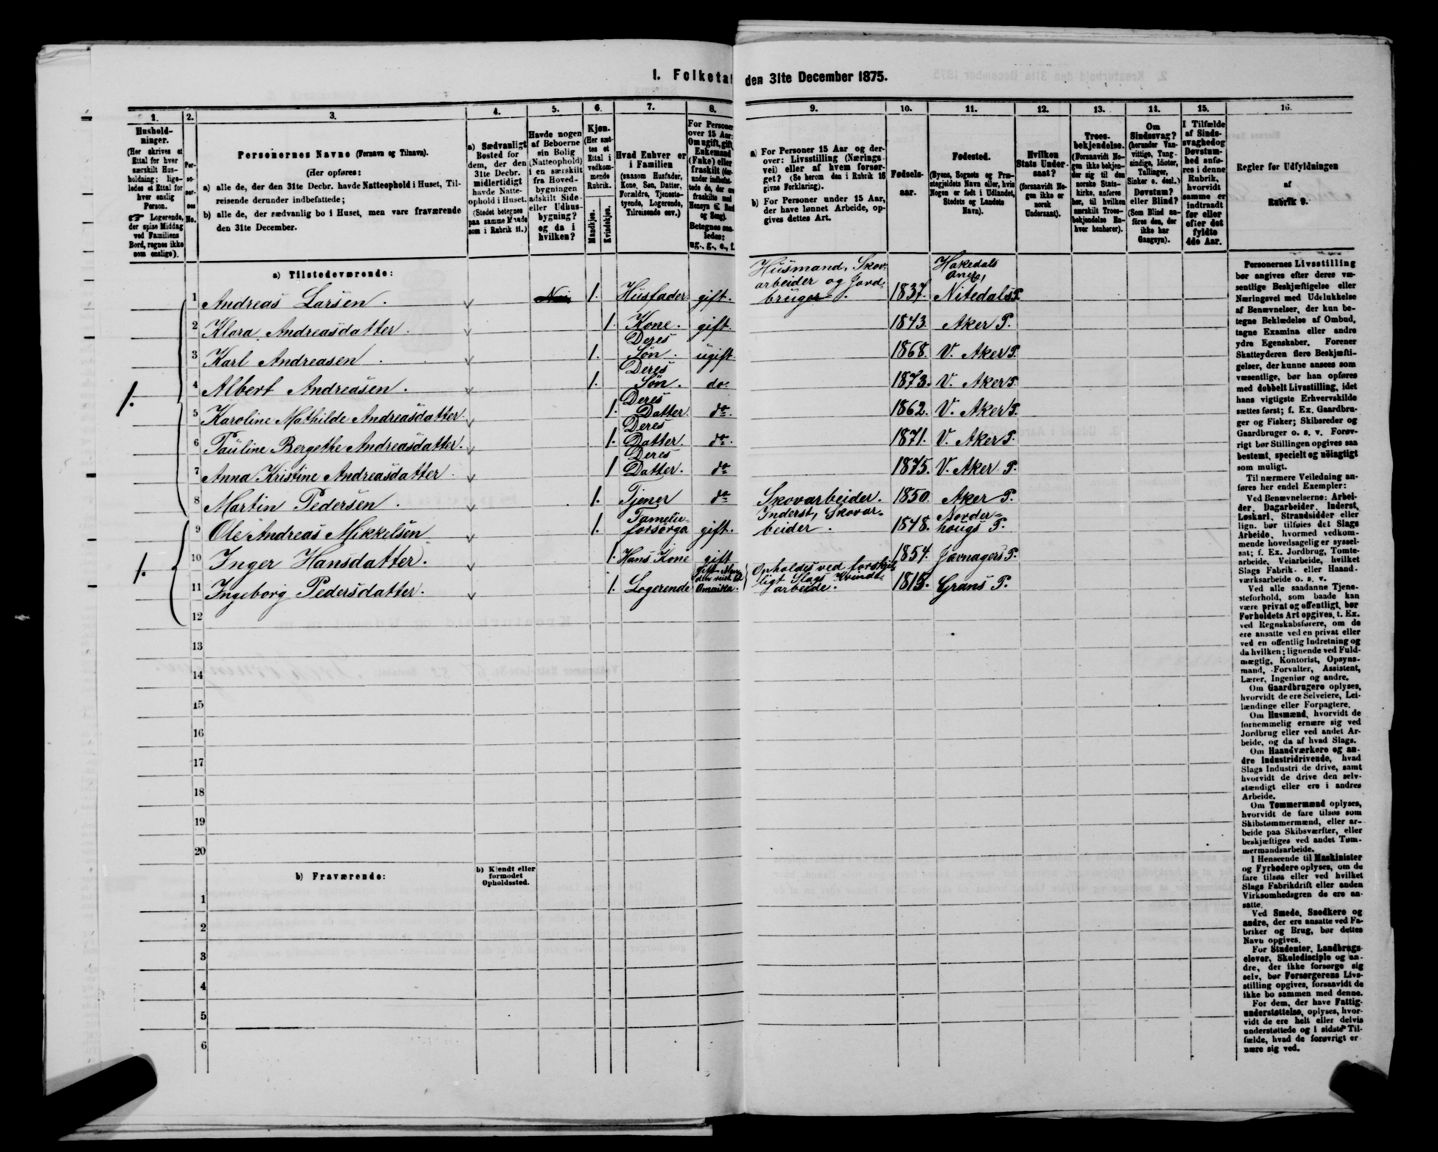 I. Folketæl
den 31te December 1875.
1.
Hushold-
ninger.
(Her skrives et
Ettal for hver
særskilt Hus-
holdning; lige-
ledes et Ettal for
hver enslig
Person.
☞ Logerende,
der spise Middag
ved Familiens
Bord, regnes ikke
som enslige).
2.
3.
Personernes Navne (Fornavn og Tilnavn).
(Her opføres:
a) alle de, der den 31te Decbr. havde Natteophold i Huset, Til-
reisende derunder indbefattede;
b) alle de, der sædvanlig bo i Huset, men vare fraværende
den 31te December.
4.
a) Sædvanligt
Bosted for
dem, der den
31te Decbr.
midlertidigt
havde Natte-
ophold i Huset.
(Stedet betegnes
paa samme Maade
som i Rubrik 11.)
5.
Havde nogen
af Beboerne
sin Bolig
(Natteophold)
i en særskilt
fra Hoved-
bygningen
adskilt Side-
eller Udhus-
bygning?
og da i
hvilken?
6.
Kjøn.
(Her sæt-
tes et
Ettal i
vedkom-
mende
Rubrik.
Mandkjøn.
Kvindekjøn.
7.
Hvad Enhver er
i Familien
(saasom Husfader,
Kone, Søn, Datter,
Forældre, Tjeneste-
tyende, Logerende,
Tilreisende osv.)
8.
For Personer
over 15 Aar:
Om ugift, gift,
Enkemand
(Enke) eller
fraskilt
Betegnes saa-
ledes:
ug., g., e., f.
9.
a) For Personer 15 Aar og der-
over: Livsstilling (Nærings-
vei) eller af hvem forsør-
get? (Se herom den i Rubrik 16
givne Forklaring).
b) For Personer under 15 Aar,
der have lønnet Arbeide, op-
gives dettes Art.
10.
Fødsels-
aar.
11.
Fødested.
(Byens, Sognets og Præ-
stegjeldets Navn eller, hvis
Nogen er født i Udlandet,
Stedets og Landets
Navn).
12.
Hvilken
Stats Under-
saat?
(forsaavidt No-
gen ikke er
norsk
Undersaat).
13.
Troes-
bekjendelse.
(Forsaavidt No-
gen ikke bekjen-
der sig til den
norske Stats-
kirke, anføres
her, til hvilken
særskilt Troes-
bekjendelse En-
hver henhører).
14.
Om
Sindssvag?
(herunder Van-
vittige, Tung-
sindige, Idioter,
Tullinger,
Sinker o. desl.)
Døvstum?
eller Blind?
(Som Blind an-
føres den, der
ikke har
Gangsyn).
15.
I Tilfælde
af Sinds-
svaghed og
Døvstum-
hed anfø-
res i denne
Rubrik,
hvorvidt
samme er
indtraadt
før eller
efter det
fyldte
4de Aar.
16.
Regler for Udfyldningen
af
Rubrik 9.
a) Tilstedeværende:
1 Andreas Larsen. 1. Husfader gift. Husmand, Skov-
arbeider og Jord-
bruger. 1837. Hakedals
Annex
Nitedals P.
2 Klara Andreasdatter. 1. Kone. gift. 1843. Aker P.
3 Karl Andreasen. 1. Deres
Søn. ugift. 1868. V. Aker P.
1.
4 Albert Andreasen. 1. Deres
Søn. do 1873. V. Aker P.
5 Karoline Mathilde Andreasdatter. 1. Deres
Datter do. 1862. V. Aker P.
6 Pauline Bergethe Andreasdatter. 1. Deres
Datter. do. 1871. V. Aker P.
7 Anna Kristine Andreasdatter 1. Deres
Datter. do 1875. V. Aker P.
8 Martin Pedersen. 1. Tjener do Skovarbeider. 1850. Aker P.
9 Ole Andreas Mikkelsen 1. Familie-
forsørga gift. Inderst, Skovar-
beider. 1848. Norder-
hougs P.
1.
10 Inger Hansdatter. 1. Hans Kone gift 1854. Jævnagers P.
11 Ingeborg Pedersdatter. 1. Logerende Opholdes ved forskjel-
ligt Slags Kvinde-
arbeide. 1815. Grans P.
12
13
14
15
16
17
18
19
20
b) Fraværende:
b) Kjendt eller
formodet
Opholdssted.
1
2
3
4
5
6
Personernes Livsstilling
bør angives efter deres væ-
sentlige Beskjæftigelse eller
Næringsvei med Udelukkelse
af Benævnelser, der kun be-
tegne Beklædelse af Ombud,
tagne Examina eller andre
ydre Egenskaber. Forener
Skatteyderen flere Beskjæfti-
gelser, der kunne ansees som
væsentlige, bør han opføres
med dobbelt Livsstilling, idet
hans vigtigste Erhvervskilde
sættes først; f. Ex. Gaardbru-
ger og Fisker; Skibsreder og
Gaardbruger o. s. v. Forøv-
rigt bør Stillingen opgives saa
bestemt, specielt og nöiagtigt
som muligt.
Til nærmere Veiledning an-
føres her endel Exempler:
Ved Benævnelserne: Arbei-
der, Dagarbeider, Inderst,
Løskarl, Strandsidder eller
lign. bør tilføies det Slags
Arbeide, hvormed vedkom-
mende hovedsagelig er syssel-
sat; f. Ex. Jordbrug, Tomte-
arbeide, Veiarbeide, hvilket
Slags Fabrik- eller Haand-
værksarbeide o. s. v.
Ved alle saadanne Tjene-
steforhold, som baade kan
være privat og offentligt, bør
Forholdets Art opgives, t. Ex.
ved Regnskabsførere, om de
ere ansatte ved en privat eller
ved en offentlig Indretning og
da hvilken; lignende ved Fuld-
mægtig, Kontorist, Opsyns-
mand, Forvalter, Assistent,
Lærer, Ingeniør og andre.
Om Gaardbrugere oplyses,
hvorvidt de ere Selveiere, Lei-
lændinge eller Forpagtere.
Om Husmænd, hvorvidt de
fornemmelig ernære sig ved
Jordbrug eller ved andet Ar-
beide, og da af hvad Slags.
Om Haandværkere og an-
dre Industridrivende, hvad
Slags Industri de drive, samt
hvorvidt de drive den selv-
stændigt eller ere i andres
Arbeide.
Om Tømmermænd oplyses,
hvorvidt de fare tilsøs som
Skibstømmermænd, eller ar-
beide paa Skibsværfter, eller
beskjæftiges ved andet Tøm-
mermandsarbeide.
I Henseende til Maskinister
og Fyrbødere oplyses, om de
fare tilsøs eller ved hvilket
Slags Fabrikdrift eller anden
Virksomhedsgren de ere an-
satte.
Ved Smede, Snedkere og
andre, der ere ansatte ved Fa-
briker og Brug, bør dettes
Navn opgives.
For Studenter, Landbrugs-
elever, Skoledisciple og an-
dre, der ikke forsørge sig
selv, bør Forsørgerens Livs-
stilling opgives, forsaavidt de
ikke bo sammen med denne.
For dem, der have Fattig-
understøttelse, oplyses, hvor-
vidt de ere helt eller delvis
understøttede og i sidste Til-
fælde, hvad de forøvrigt er-
nære sig ved.